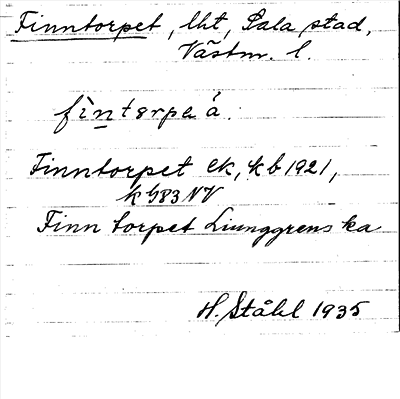 Finntorpet, lht, Sala stad,
Västm. l.
fìntərpə á.
Finntorpet ek, kb 1921,
k 983 NV
Finntorpet Liunggrens ka
H. Ståhl 1935